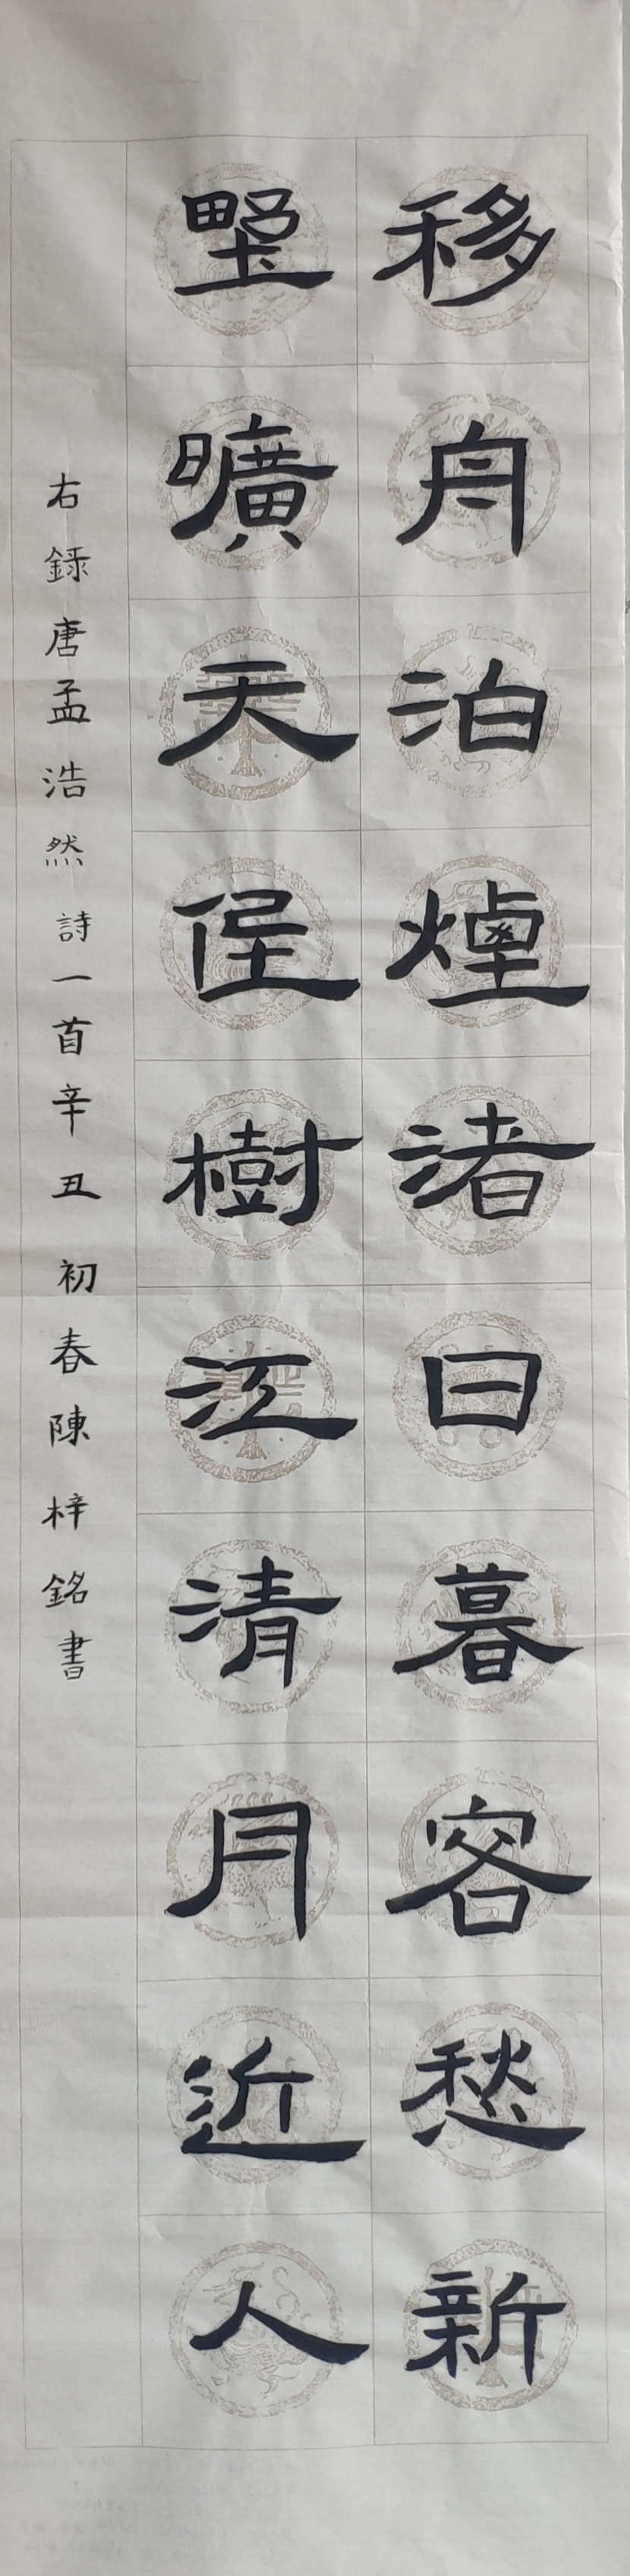 移舟泊煙渚日暮客愁新
野曠天低樹江清月近人
右錄唐孟浩然詩一首辛丑初春陳梓銘書